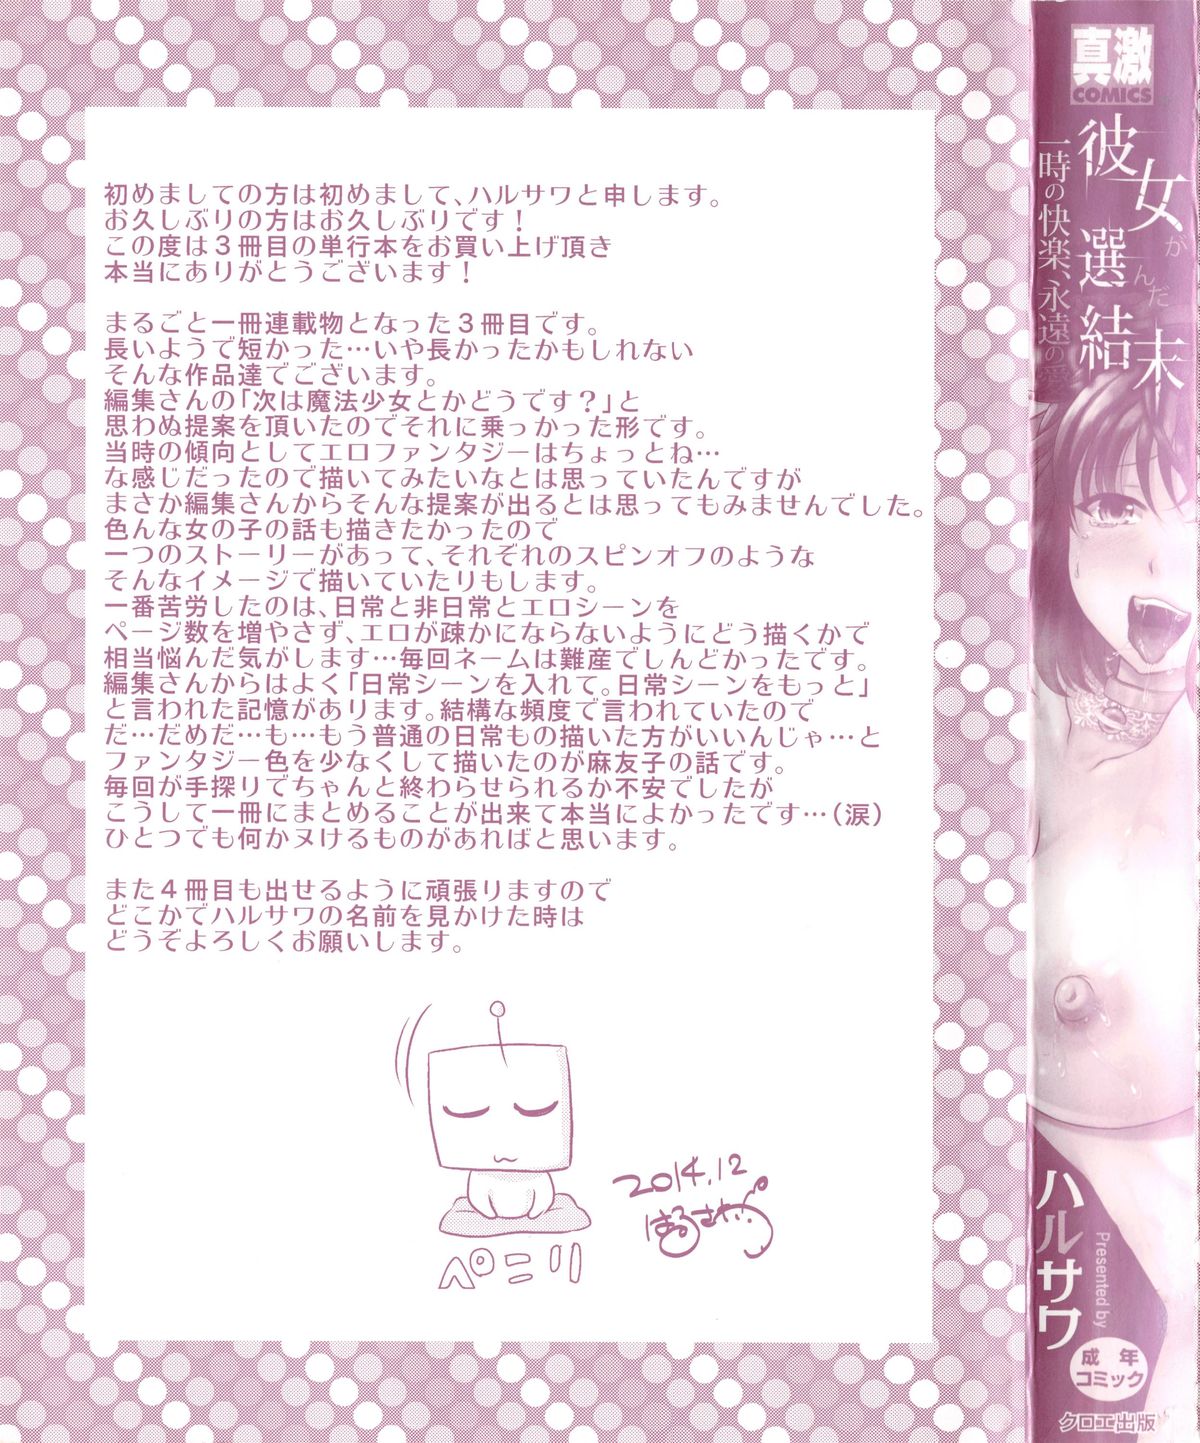 初めましての方は初めまして、ハルサワと申します。
お久しぶりの方はお久しぶりです！
この度は３冊目の単行本をお買い上げ頂き
本当にありがとうございます！
まるごと一冊連載物となった３冊目です。
長いようで短かった…いや長かったかもしれない
そんな作品達でございます。
編集さんの「次は魔法少女とかどうです？」と
思わぬ提案を頂いたのでそれに乗っかった形です。
当時の傾向としてエロファンタジーはちょっとね…
な感じだったので描いてみたいなとは思っていたんですが
まさか編集さんからそんな提案が出るとは思ってもみませんでした。
色んな女の子の話も描きたかったので
一つのストーリーがあって、それぞれのスピンオフのような
そんなイメージで描いていたりもします。
一番苦労したのは、日常と非日常とエロシーンを
ページ数を増やさず、エロが疎かにならないようにどう描くかで
相当悩んだ気がします…毎回ネームは難産でしんどかったです。
編集さんからはよく「日常シーンを入れて。日常シーンをもっと」
と言われた記憶があります。結構な頻度で言われていたので
だ…だめだ…も…もう普通の日常もの描いた方がいいんじゃ…と
ファンタジー色を少なくして描いたのが麻友子の話です。
毎回が手探りでちゃんと終わらせられるか不安でしたが
こうして一冊にまとめることが出来て本当によかったです…（涙）
ひとつでも何かヌけるものがあればと思います。
また４冊目も出せるように頑張りますので
どこかでハルサワの名前を見かけた時は
どうぞよろしくお願いします。
ペニリ
2014.12
はるさわ
真激
COMICS
彼女が選んだ結末
一時の快楽、永遠の愛
ハルサワ
Presented by
成年
コミック
クロエ出版